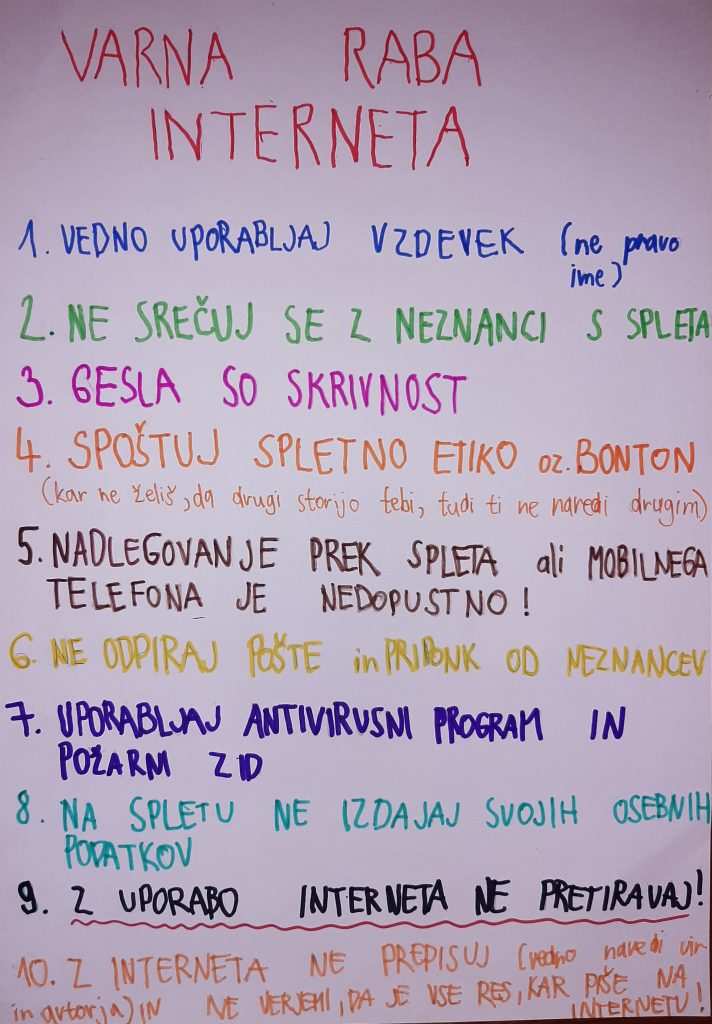 VARNA RABA
INTERNETA
1. VEDNO UPORABLJAJ VZDEVEK (ne pravo
ime)
2. NE SREČUJ SE Z NEZNANCI S SPLETA
3. GESLA SO SKRIVNOST
4. SPOŠTUJ SPLETNO ETIKO oz. BONTON
(kar ne želiš, da drugi storijo tebi, tudi ti ne naredi drugim)
5. NADLEGOVANJE PREK SPLETA ali MOBILNEGA
TELEFONA JE NEDOPUSTNO!
6. NE ODPIRAJ POŠTE in PRIPONK OD NEZNANCEV
7. UPORABLJAJ ANTIVIRUSNI PROGRAM IN
POŽARNI ZID
8. NA SPLETU NE IZDAJAJ SVOJIH OSEBNIH
PODATKOV
9. Z UPORABO INTERNETA NE PRETIRAVAJ!
10. Z INTERNETA NE PREPISUJ (vedno navedi vir
in avtorja) IN NE VERJEMI, DA JE VSE RES, KAR PIŠE NA
INTERNETU!